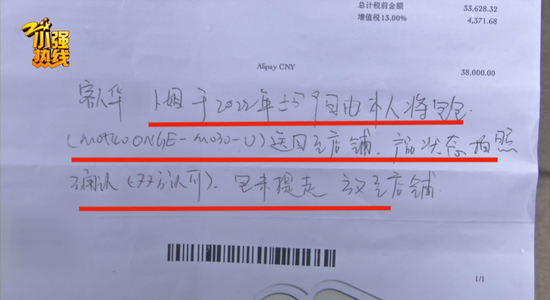 小强热线
总计税前金额 33,628.32
增值税13.00% 4,371.68
Alipay CNY
38,000.00
小姐于2022年 9日由本人将包包
送回至店铺. 产品状态拍照
确认(双方认可). 包未提走 放至店铺
1/1